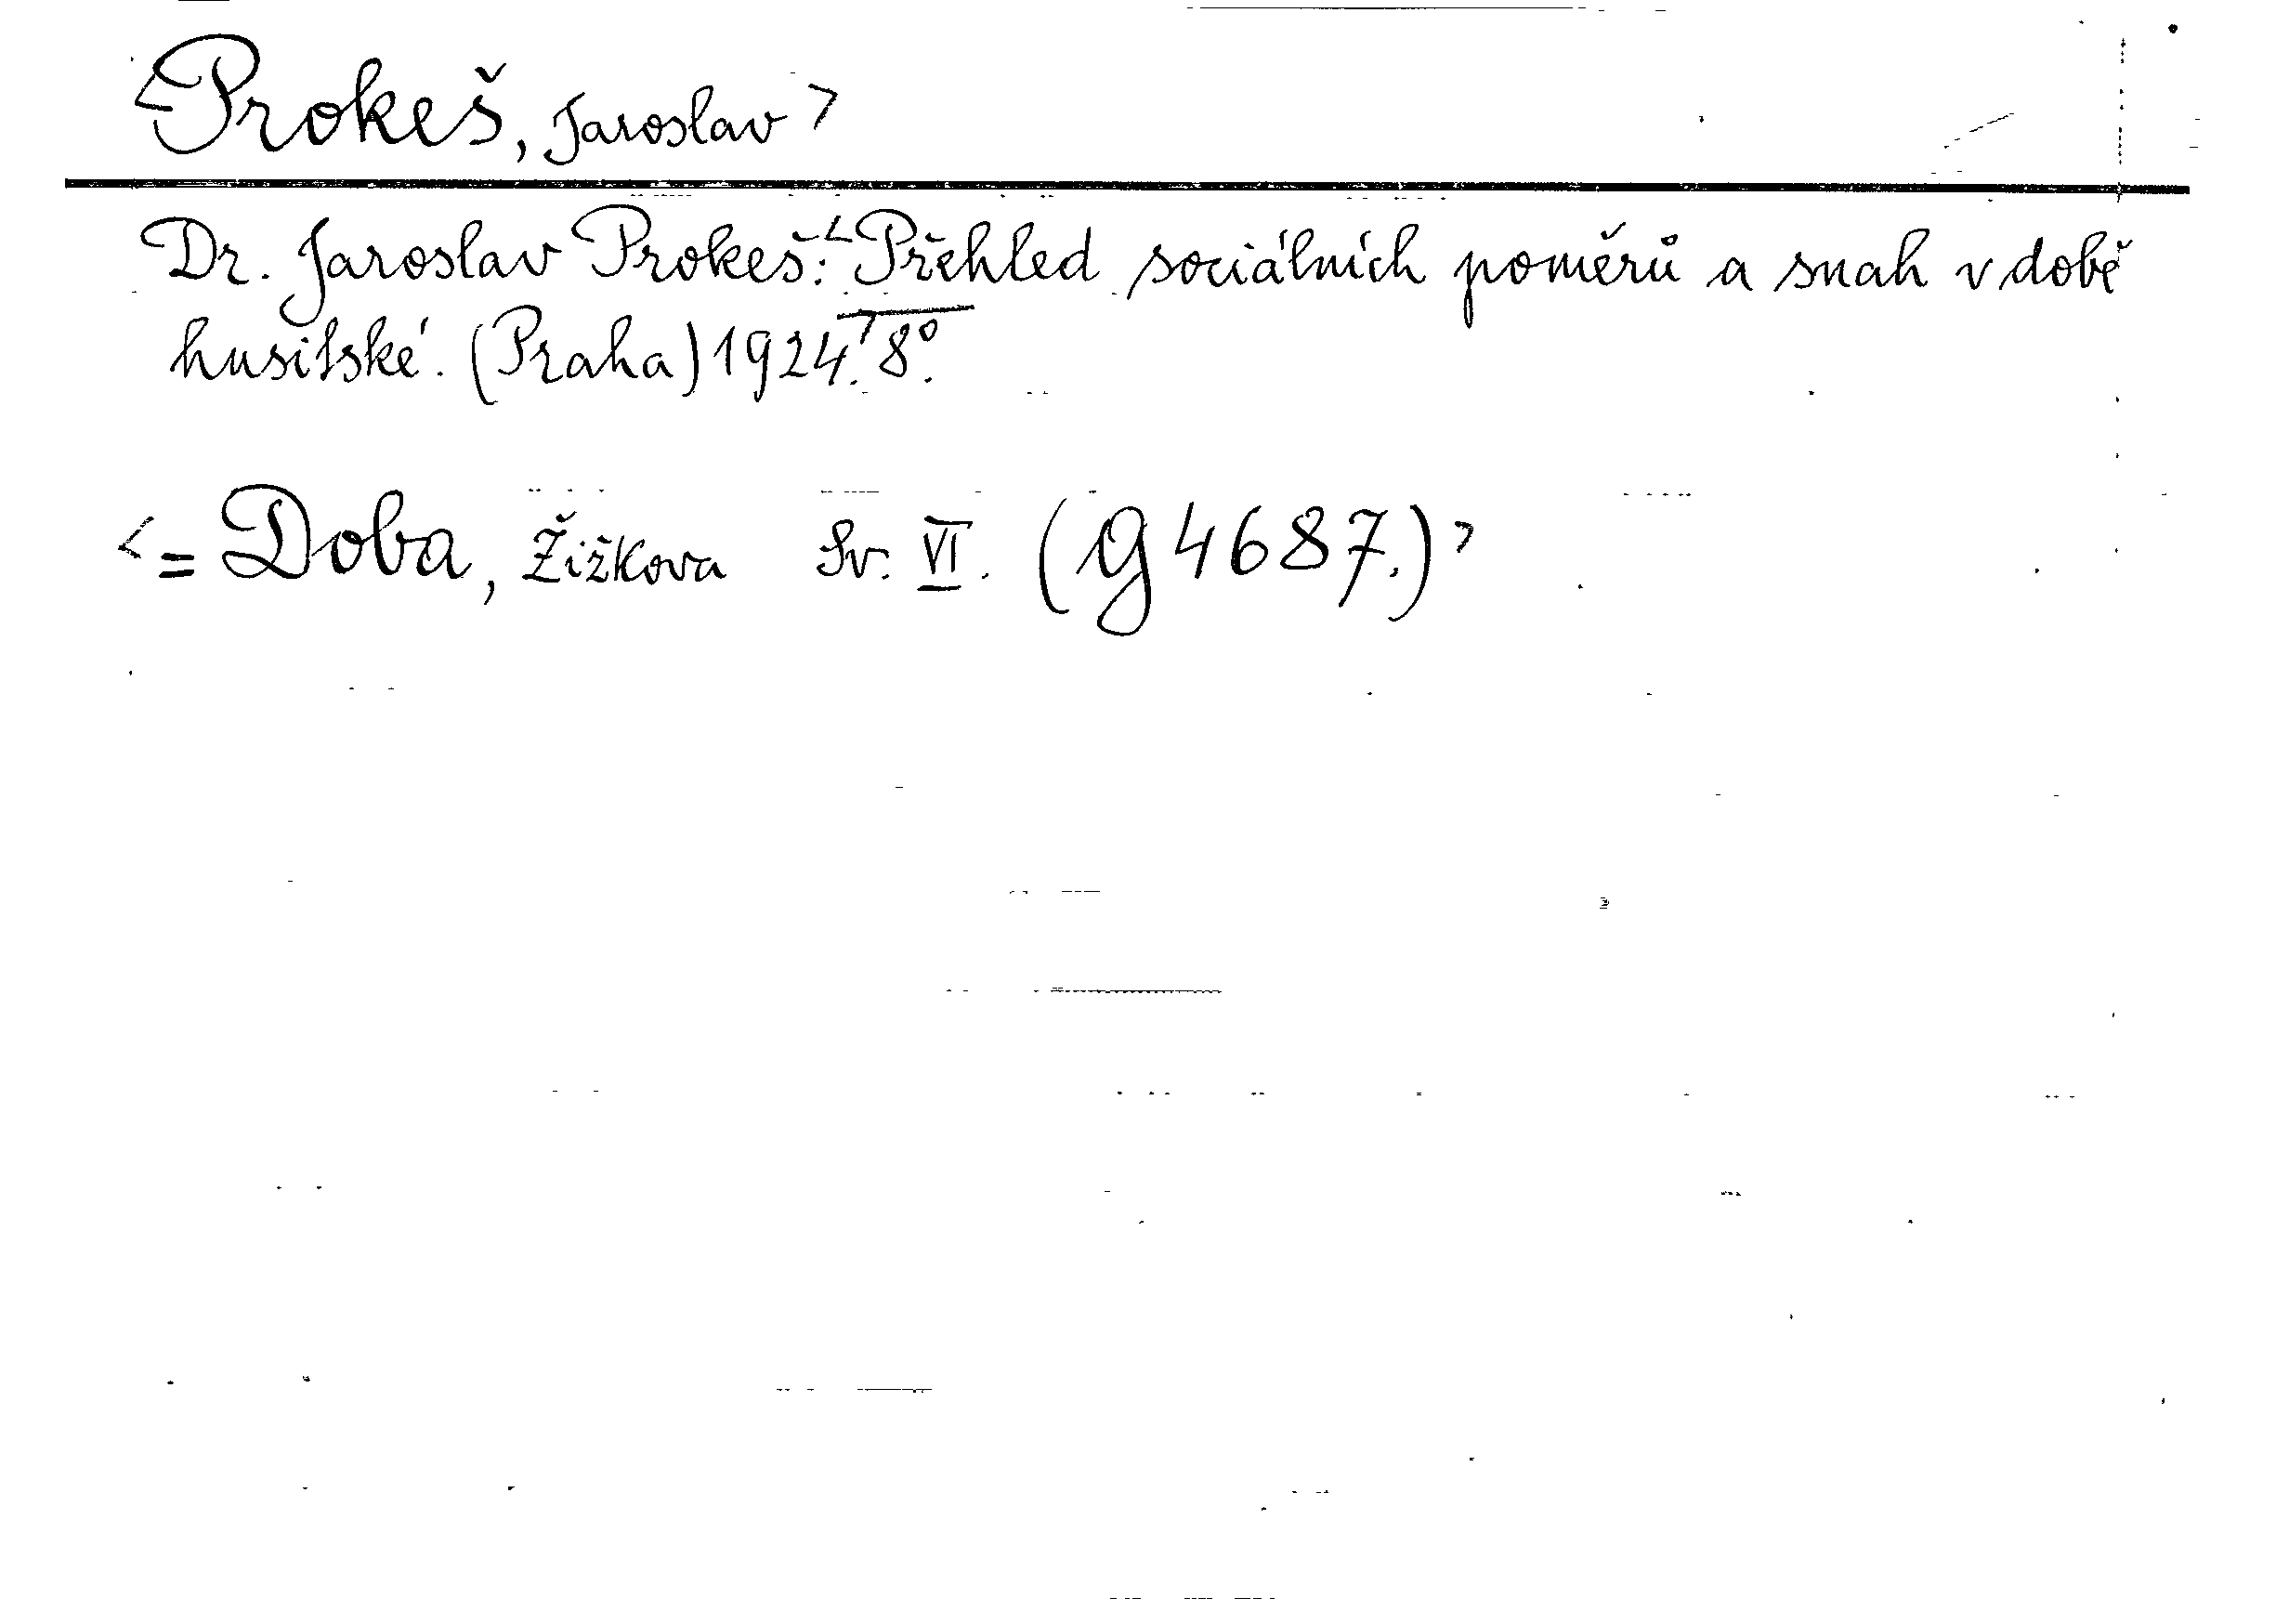 <Prokeš, Jaroslav>
Dr. Jaroslav Prokeš: <Přehled sociálních poměrů a snah v době
husitské. (Praha) 1924.> 8°.
<= Doba, Žižkova Sv. VI. (g 4687.)>